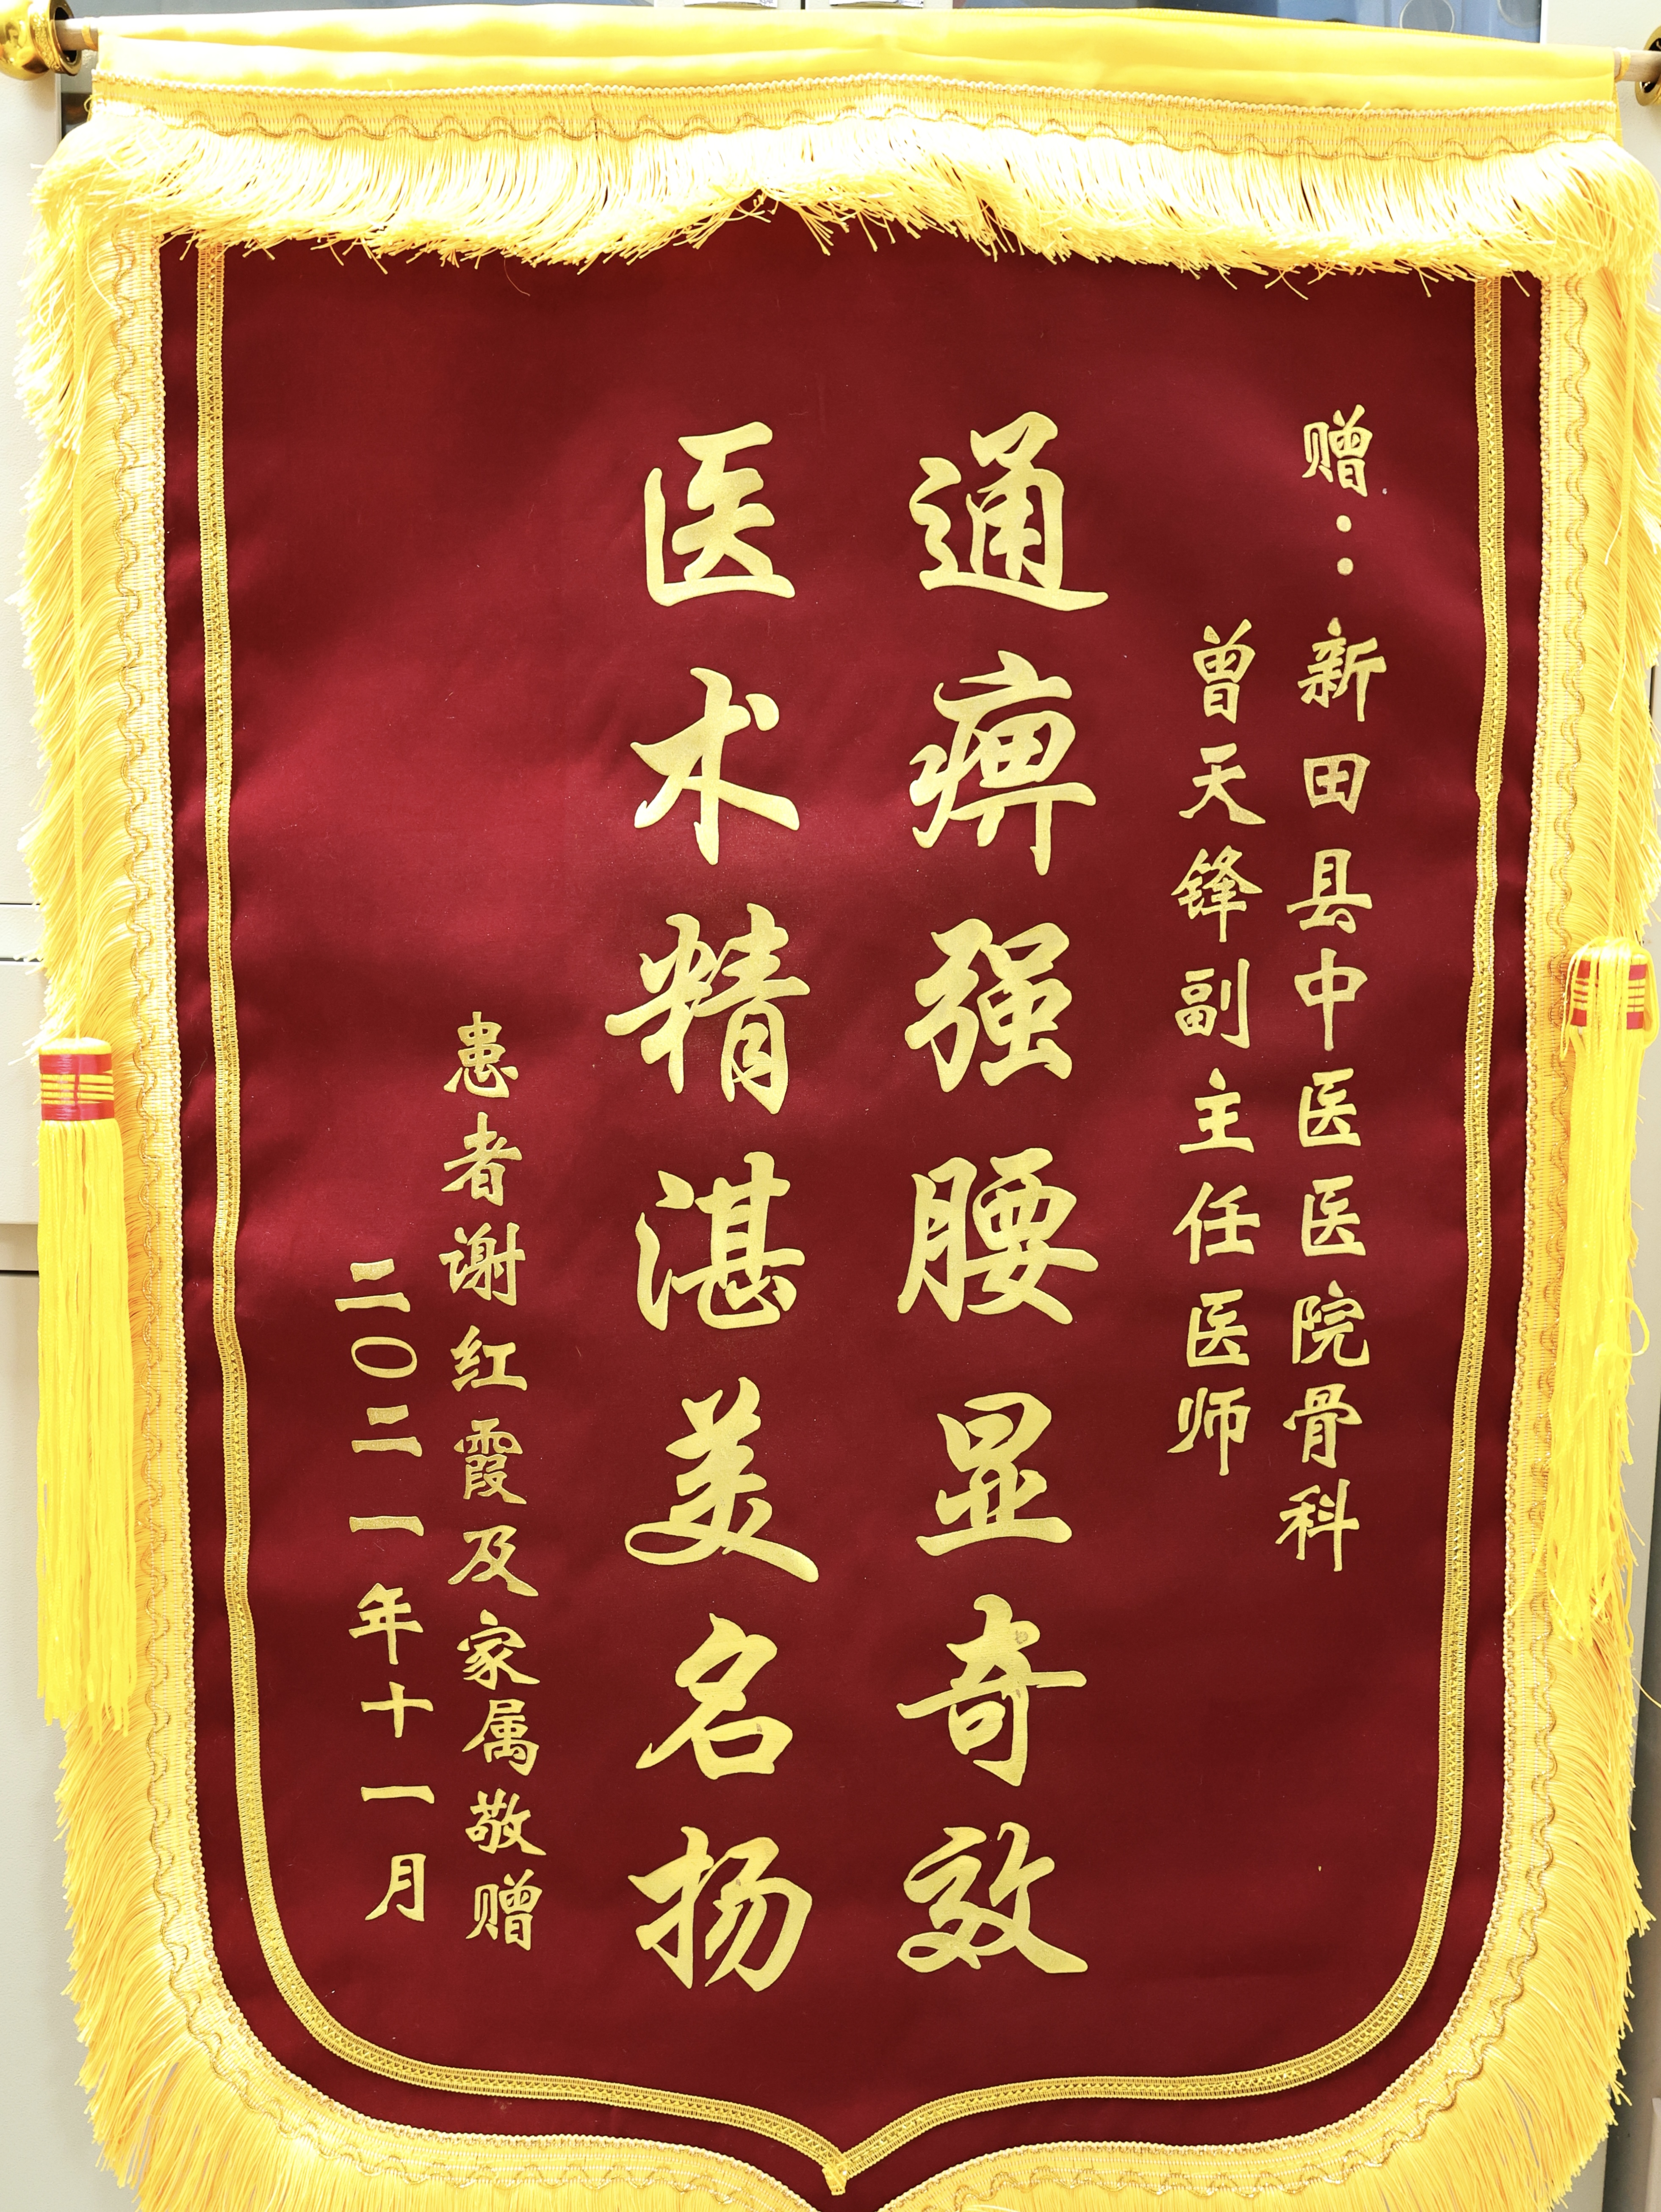 赠：新田县中医医院骨科
曾天锋副主任医师
通痹强腰显奇效
医术精湛美名扬
患者谢红霞及家属敬赠
二〇二一年十一月